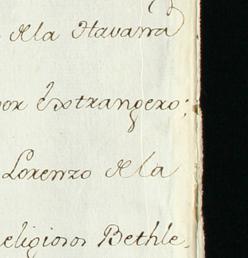 dela Havana
por Extrangero;
Lorenzo dela
eligiosos Bethle,